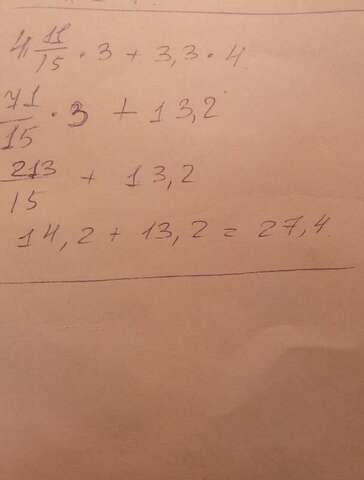 4 11/15 · 3 + 3,3 · 4
71/15 · 3 + 13,2
213/15 + 13,2
14,2 + 13,2 = 27,4